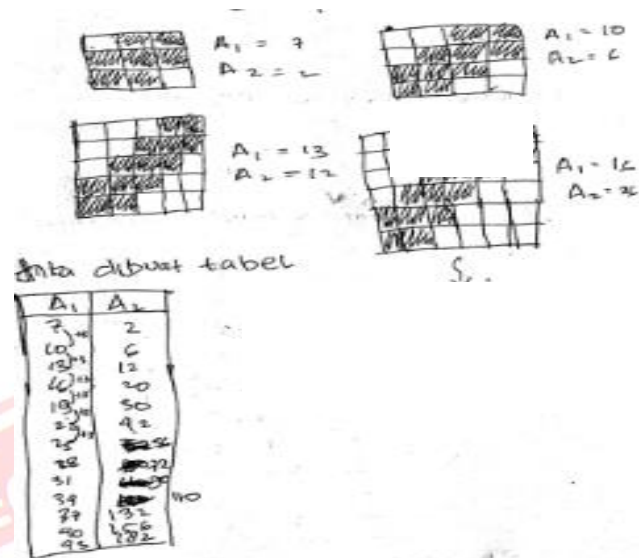 A₁ = 7
A₂ = 2
A₁ = 10
A₂ = 6
A₁ = 13
A₂ = 12
A₁ = 16
A₂ =
dibuat tabel
A₁ A₂
7 2
10 6
13 12
16 20
19 30
42
25 56
28 72
31
34 110
37 132
40 156
43 182